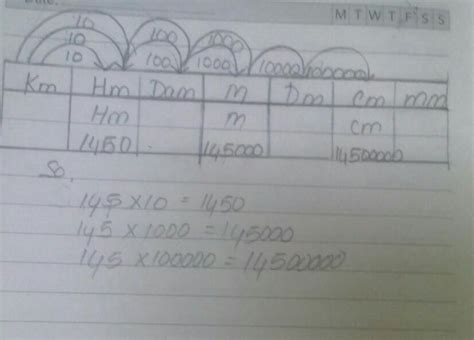 M T W T F S S
10 100 1000
10
10 100 1000 10000 100000
Km Hm Dam M Dm Cm mm
Hm m cm
1450 145000 14500000
So,
145 × 10 = 1450
145 × 1000 = 145000
145 × 100000 = 14500000